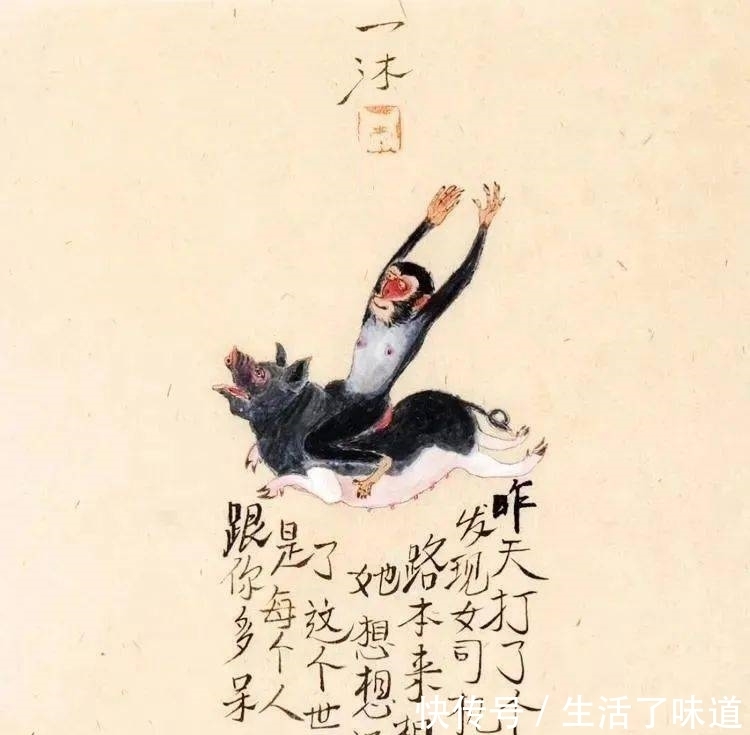 一沐
昨天打了个
发现女司
路本来
她想想
了这个世
是每个人
跟你多呆
快传号 / 生活了味道